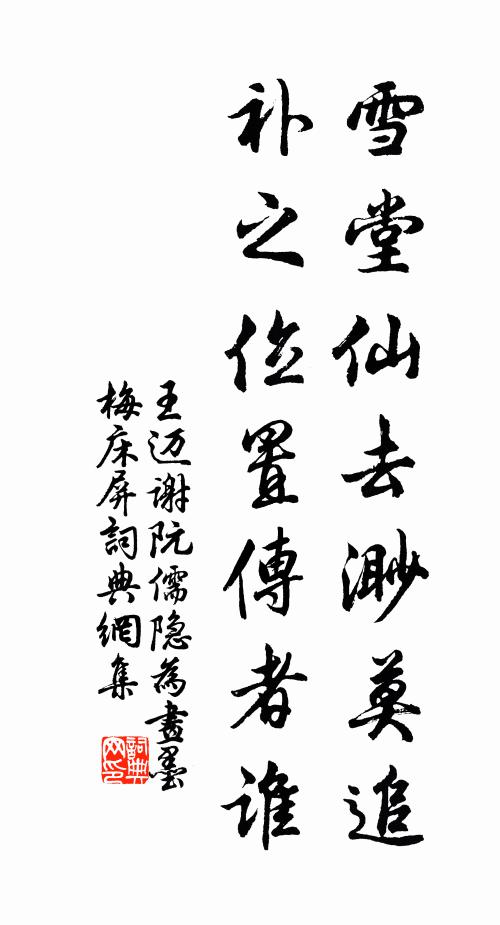 雪堂仙去渺莫追
补之位置傳者谁
王迈谢阮儒隐為畫墨
梅床屏詞典網集
詞典网印